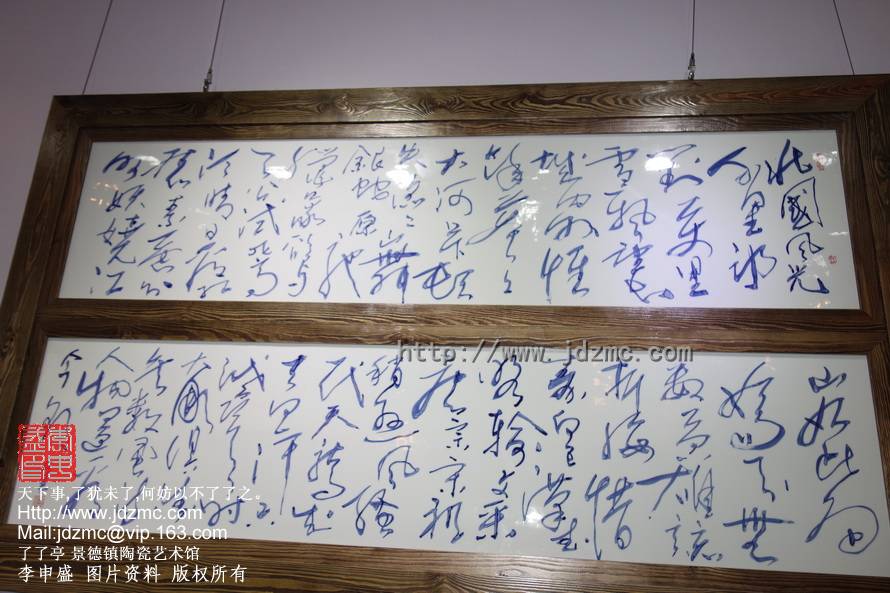 北國風光
千里冰
封万里
雪飄望長
城内外惟
餘莽々
大河上下頓
失滔々山舞
銀蛇原馳
天公試比高
須晴日看紅
裝素裹分外
妖嬈江
山如此多
嬌引無
數英雄競
折腰惜
秦皇漢武
略輸文采
唐宗宋祖
稍遜風騷
代天驕成
吉思汗
大雕俱往
數風流
人物還看
今朝
http://www.jdzmc.com
天下事,了犹未了,何妨以不了了之。
Http://www.jdzmc.com
Mail:jdzmc@vip.163.com
了了亭 景德镇陶瓷艺术馆
李申盛 图片资料 版权所有